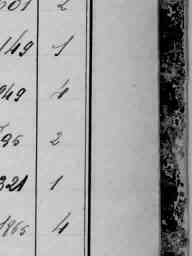 501 2
149 1
949 4
795 2
321 1
1965 4